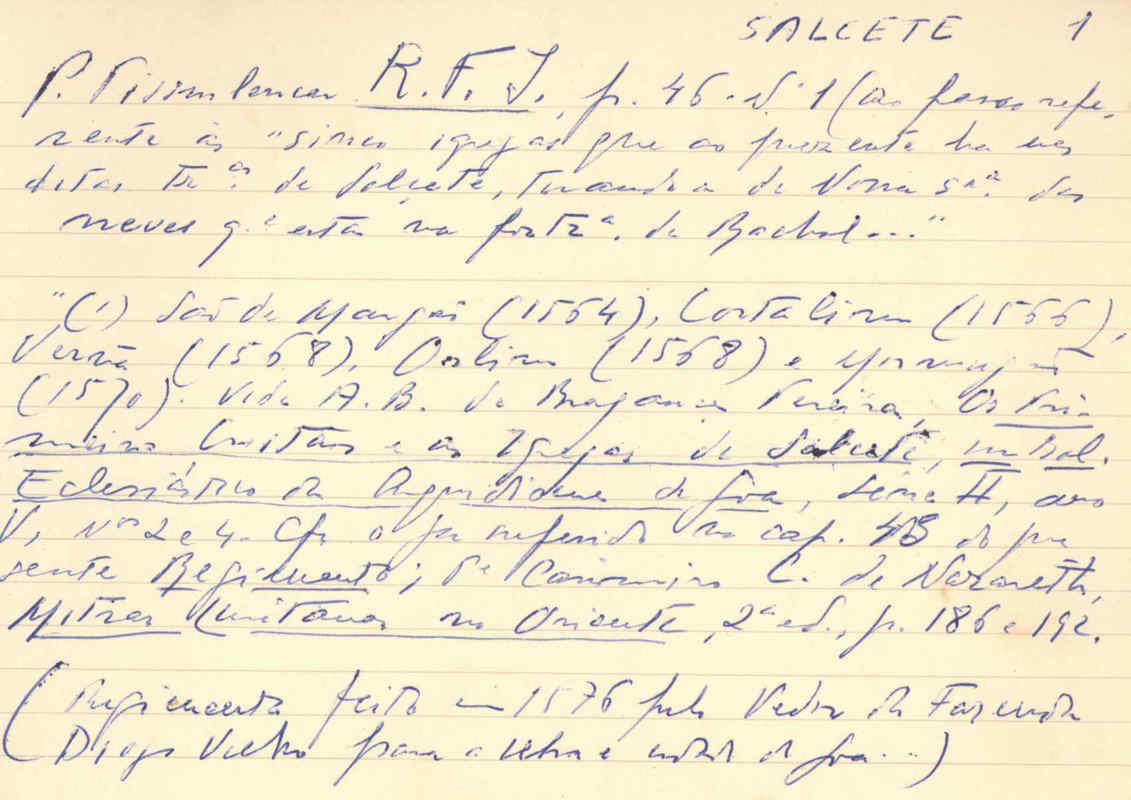 SALCETE 1
P. Pissurlencar R.F.G., p. 46. Nº 1 (ao passo refe-
rente às "sinco igrejas que ao prezente ha nas
ditas Trªs. de Salçete, tirando a de Nossa Srª. das
neves q.e está na fortzª. de Rachol..."
"(1) São de Margão (1564), Cortalim (1566),
Verná (1568), Orlim (1568) e Mormugão
(1570). Vide A. B. de Bragança Pereira, Os Pri-
meiros Cristãos e as Igrejas de Salcete, in Bol.
Eclesiástico da Arquidiocese de Goa, série II, ano
V, Nos 2 e 4. Cfr o já referido no cap. 48 do pre
sente Regimento; Pe Casimiro C. de Nazareth,
Mitras Lusitanas no Oriente, 2ª ed., p. 186 e 192.
(Regimento feito em 1576 pelo Vedor da Fazenda
Diogo Velho para a ilha e cidade de Goa...)